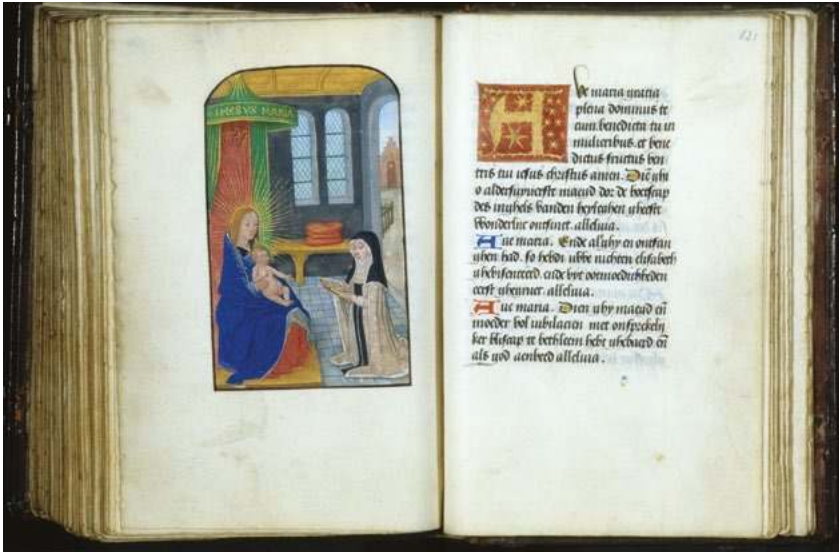 MARIA
Ave maria gracia
plena dominus te
cum benedicta tu in
mulieribus et bene
dictus fructus ven
tris tui iesus christus amen. Die ghi
o aldersuverste maeud dor de boetscap
des inghels vanden heyleghen gheest
wonderlic ontfinct alleluia.
Aue maria. Ende als ghy en ontfan
ghen had so hebdi uwe nichten elisabeth
ghevisenteerd ende bye oetmoedicheden
eerst ghegruet alleluia.
Aue maria. Dien ghy maeud en
moeder vol iubilacien met onsprekelij
ker bliscap te bethleem hebt ghebaerd en
als god aenbeed alleluia.